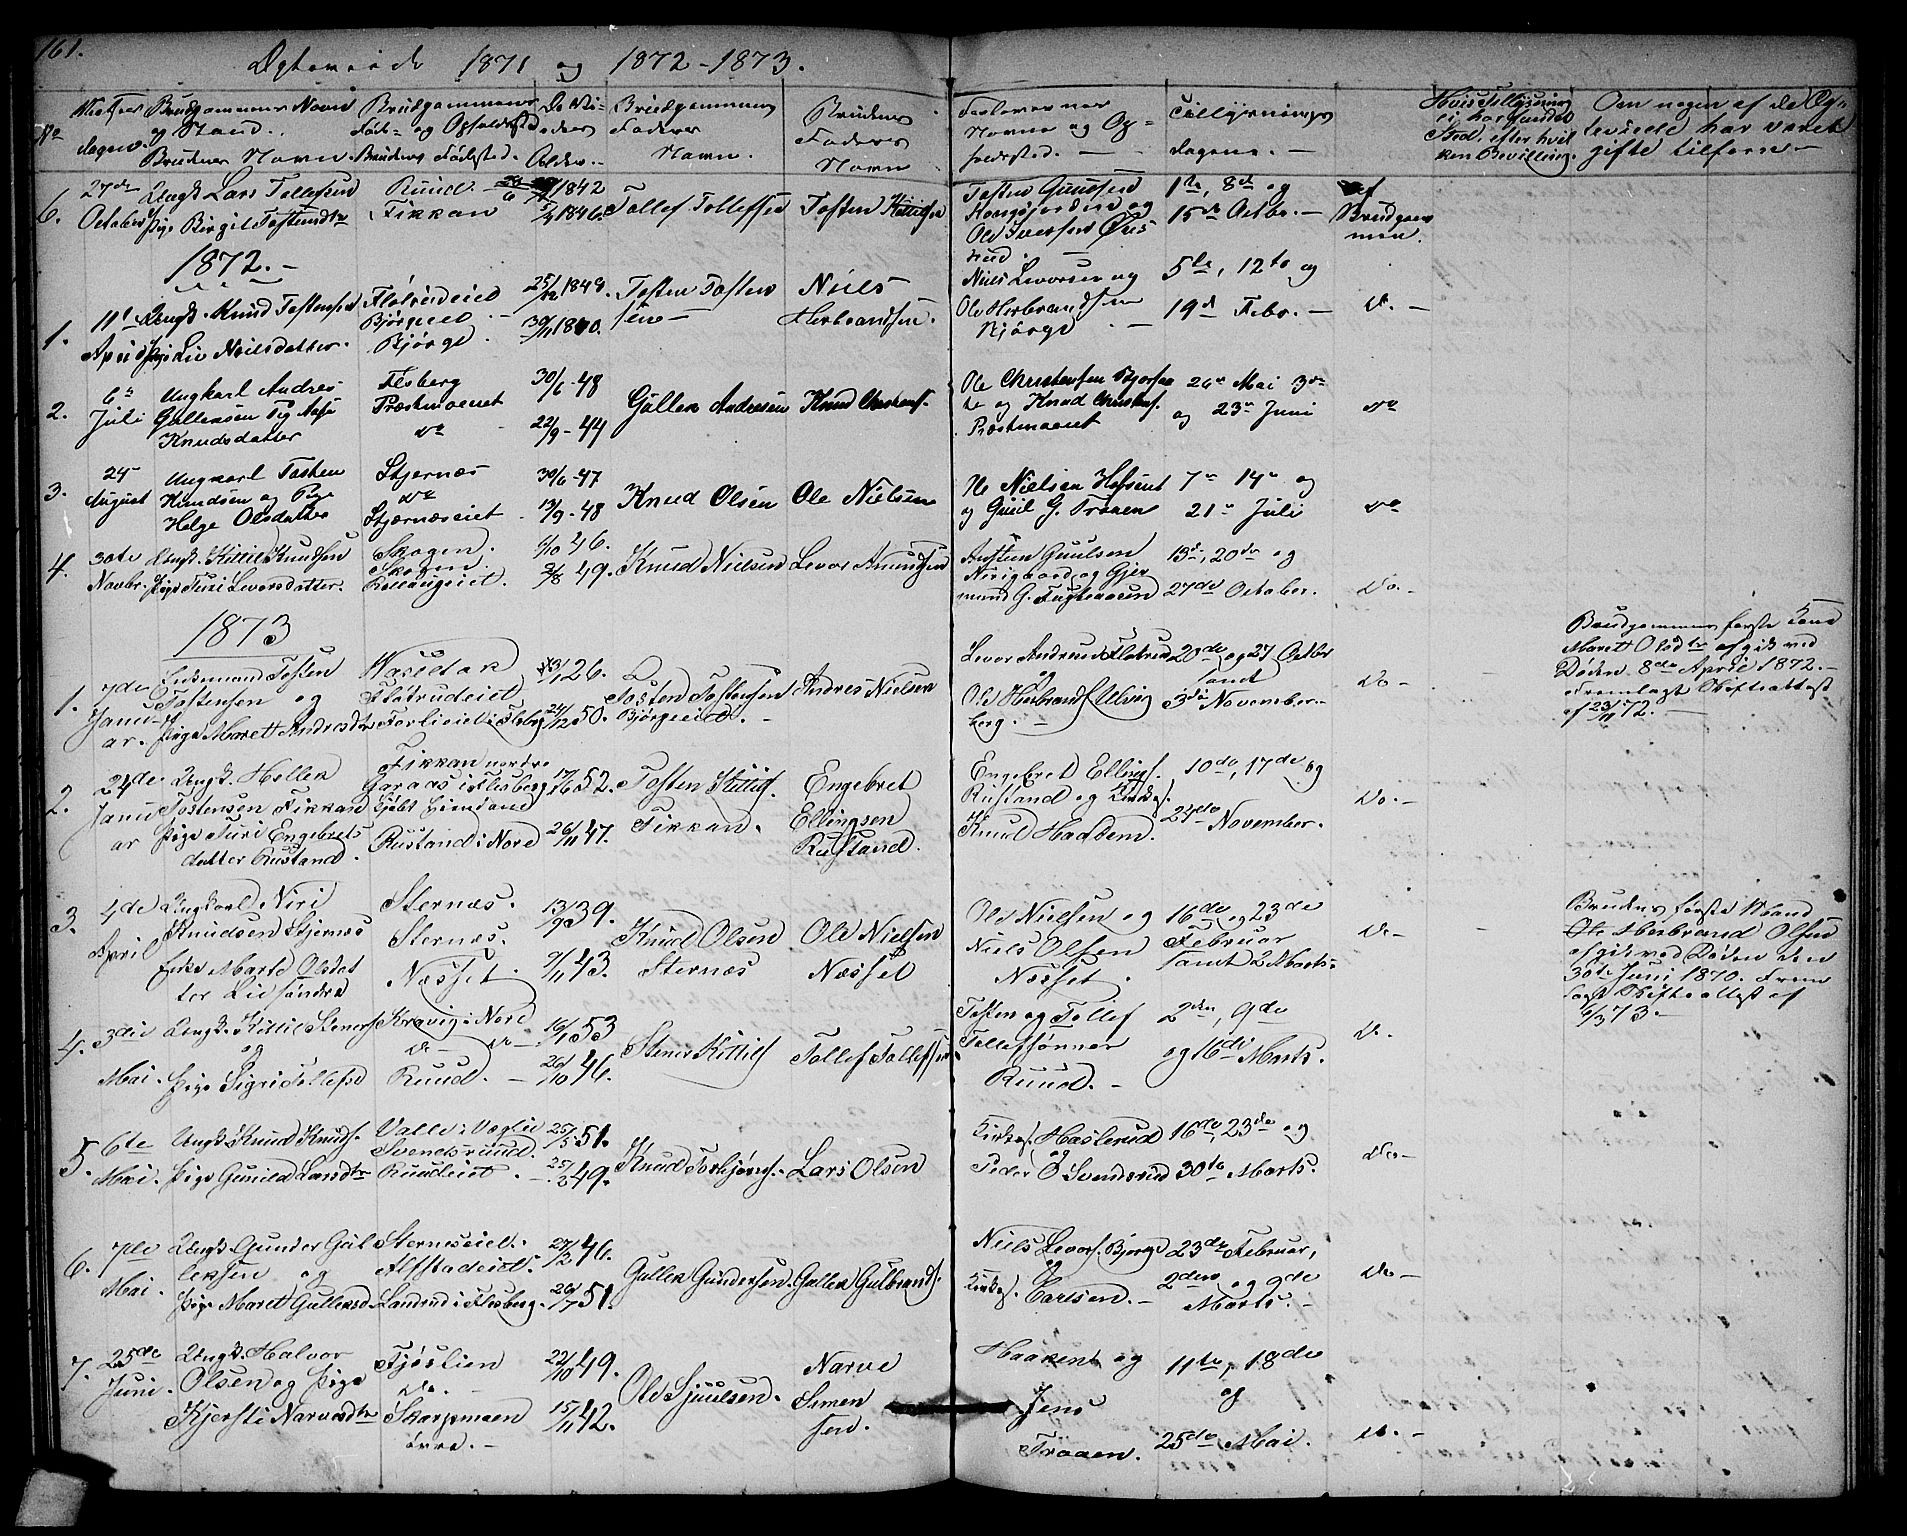 161.
Ægteviede 1871 og 1872-1873.
No
Vielses
dagen.
Brudgommens Navn
og Stand.
Brudens Navn.
Brudgommens
Føde- og Opholdssted
Brudens Fødested.
Deres
Alder.
Brudgommens
Faders
Navn.
Brudens
Faders
Navn
Forlovernes
Navne og Op-
holdssted.
Tillysnings
dagene.
Hvis Tillysning
ei har fundet
Sted, efter hvil
ken Bevilling.
Om nogen af de Æg-
teviede har været
gifte tilforn
6.
27de
October
Ungk Lars Tollefsen
Pige Birgit Tostensdtr
Ruud
Fikkan
1842
1846
Tollef Tollefsen
Tosten Kittilsen
Tosten Guulsen
Kongsjorden og
Ole Iversen Øvs
rud.
1ste, 8de og
15de Octbr.
af
Brudgom
men.
1872.
1.
11te
April
Ungk. Knud Tostensen
Pige Liv Nielsdatter.
Flatrudeiet
Bjørgeeie
Bjørge
25/12 1848.
30/11 1840.
Tosten Tosten
sen
Niels
Herbrandsen.
Niels Levorsen og
Ole Herbrandsen
Bjørge
5te, 12te og
19de Febr.
Do.
2.
6te
Juli
Ungkarl Andres
Gullensen Pig Aase
Knudsdatter
Flesberg
Præstmoenet
do
30/6-48
22/9-44
Gullek Andresen
Knud Christens.
Ole Christensen Bjorsæ
te og Knud Christens.
Præstmoenet
26de Mai 3die
og 23de Juni
do
3.
24de
August
Ungkarl Tosten
Knudsen og Pige
Helge Olsdatter
Stjernæs
do
Stjærnæseiet
30/6-47
13/9-48
Knud Olsen
Ole Nielsen
Ole Nielsen
og Guul G. Traaen
7de 14de og
21de Juli
do
4.
30te
Novbr.
Ungk. Kittil Knudsen
Pige Turi Levorsdatter.
Skogen.
Skogen.
6/10 46.
2/8 49.
Knud Nielsen
Levor Amundsen
Austen Guulsen
og Gjer
mund G. Fugleaasen
13de, 20de og
27de October.
Do.
1873
1.
7de
Janu
ar.
Enkemand Tosten
Tostensen og
Pige Maret Andresdtr
Flatrudeiet
Forlieiet i Flesberg
26.
24/12 50.
Tosten Tostensen
Bjørgeeiet.
Andres Nielsen
Levor Andresen Flatrud
og
Ole Herbrands Ulleviks
berg.
20de og 27 Octbr
samt
3die November.
Do
Brudgommens første Kone
Marett Olsdtr afgik ved
Døden 8de April 1872.
Fremlagt Skifteattest
af 23/11 72.
2.
24de
Janu
ar
Ungk. Hellek
Tostensen Fikkan
Pige Turi Engebrets
datter Rustand.
Fikkan nordre
Garaas i Flesberg
Rustand i Nore
17/6 52.
26/11 47.
Tosten Kittils.
Fikkan.
Engebret
Ellingsen
Rustand.
Engebret Ellings.
Rustand og Kirkes.
Knud Hadsem.
10de, 17de og
24de November.
Do.
3.
4de
April
Ungkarl Niri
Knudsen Stjernæs
Enke Marte Olsdat
ter Lie søndre
Sternæs.
Sternæs.
Næsset.
13/9 39.
9/11 43.
Knud Olsen
Sternæs
Ole Nielsen
Næsset
Ole Nielsen og
Niels Olsen
Næsset.
16de og 23de
Februar
samt 2 Marts.
Do
Brudens første Mand
Ole Herbrand Olsen
afgik ved Døden den
30te Juni 1870. Frem
lagt Skifteattest af
6/3 73.
4.
3die
Mai.
Ungk. Kittil Steners.
og
Pige Sigri Tollefsd
Kravig i Nore
do do
Ruud.
16/1 53
20/10 46.
Stener Kittils
Tollef Tollefsen
Tosten og Tollef
Tollefsønner
Ruud.
2den, 9de
og 16de Marts.
Do.
5.
6te
Mai.
Ungk. Knud Knuds.
Pige Gunild Larsdtr
Valle i Veglie
Svendsrud.
Ruudeiet
25/5 51.
25/2 49.
Knud Torbjørns.
Lars Olsen
Kirkes. Haslerud
og
Peder O Svendsrud
16de, 23de og
30te Marts.
Do
6.
7de
Mai.
Ungk. Gunder Gul
leksen og
Pige Maret Gulleksd.
Sterneseiet.
Alfstadeiet
Landrud i Flesberg.
27/2 46.
26/7 51.
Gullek Gundersen.
Gullek Gulbrands.
Niels Levors. Bjørge
og
Kirkes. Carlsen.
23de Februar,
2den og 9de
Marts.
Do
7.
25de
Juni.
Ungk. Halvor
Olsen og Pige
Kjersti Narvesdtr
Fjøslien
do.
Skarpmoen
øvre.
22/10 49.
15/11 42.
Ole Sjuulsen.
Narve
Simen
sen.
Haaken og
Jens
Traaen.
11te, 18de
og
25de Mai.
do.